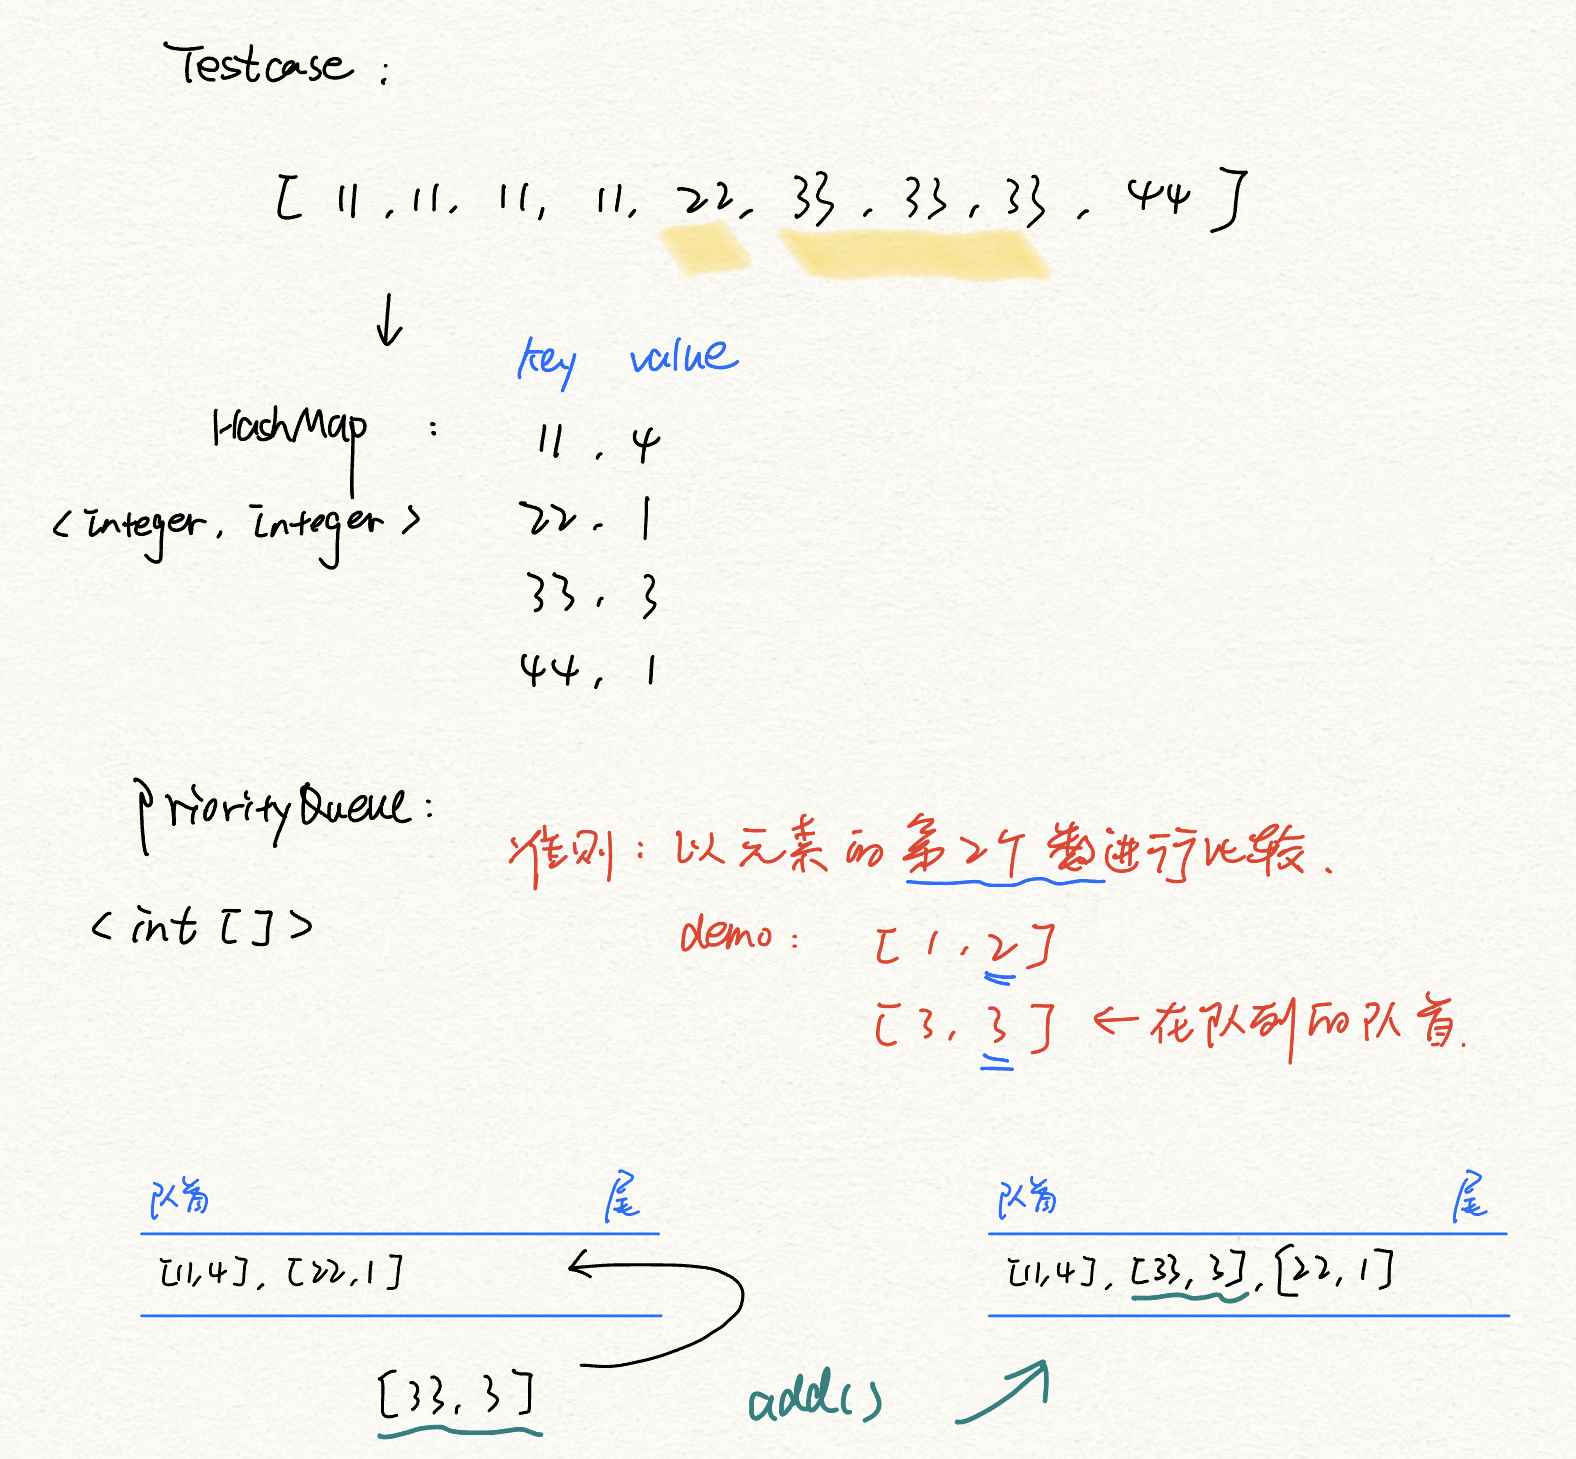 Testcase :
[ 11 , 11, 11, 11, 22, 33, 33, 33, 44 ]
↓
key value
HashMap : 11, 4
<integer, integer> 22, 1
33, 3
44, 1
PriorityQueue:
准则：以元素的第2个数进行比较.
<int []>
demo: [1, 2]
[3, 3] ← 在队列的队首.
队首 尾
[11,4], [22,1]
[33, 3]
add()
队首 尾
[11,4], [33,3], [22,1]